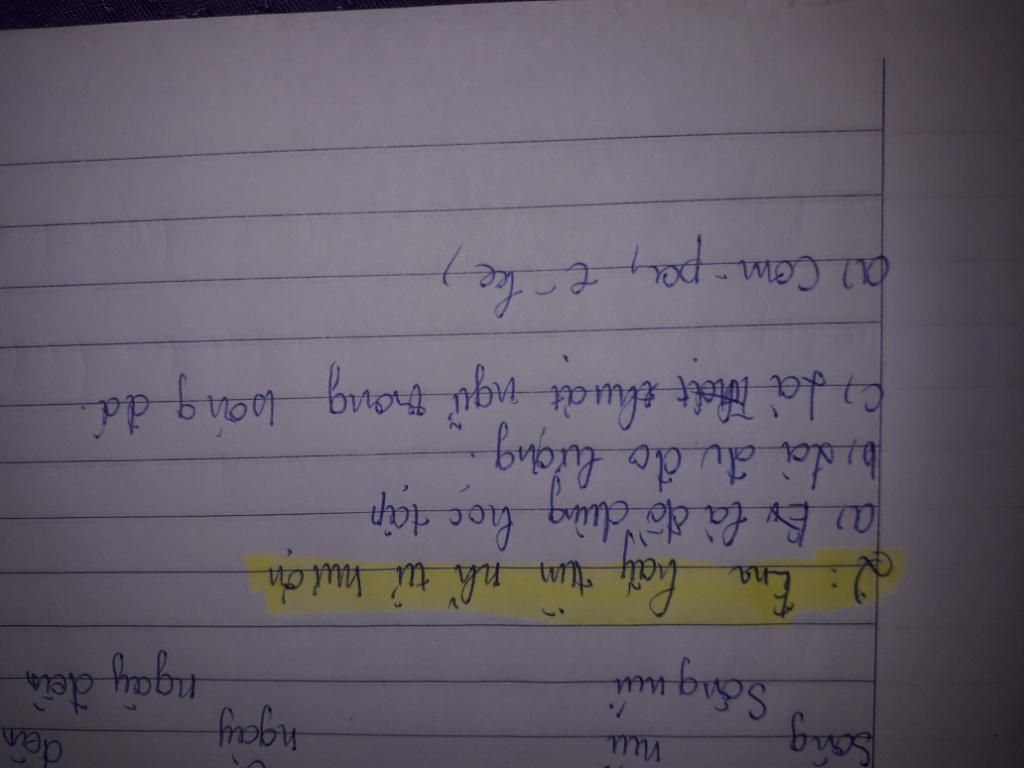 sông núi ngày đàn
Sông núi ngày đến
2: Em hãy tìm những từ mượn
a) Là đồ dùng học tập
b) là đv đo lường.
c) Là thuật ngữ trong bóng đá.
a) Com-pa, ê ke,